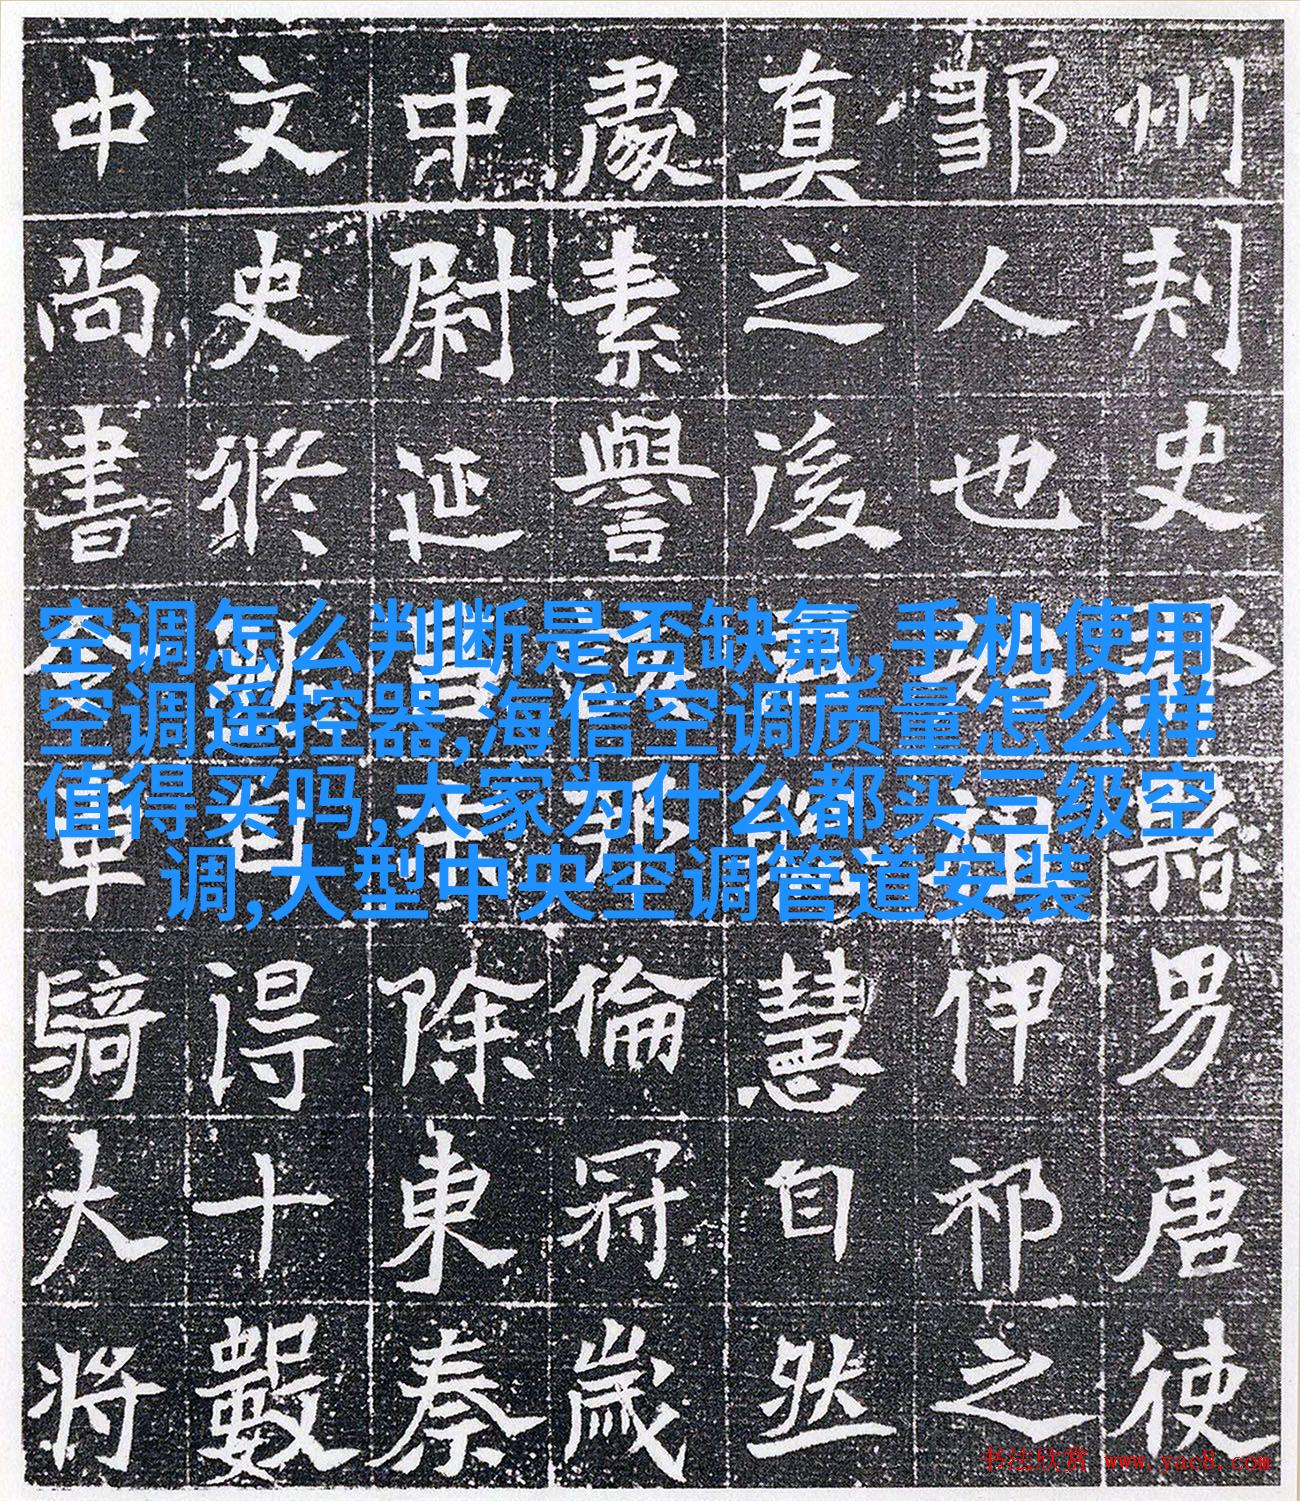 州刾史縣男唐使
鄒人也伊祁之
真之後慧自然
處素譽倫冠歲
中尉延除東秦
文史修得十數
中尚書令車騎大將
空调怎么判断是否缺氟,手机使用
空调遥控器,海信空调质量怎么样
值得买吗,大家为什么都买三级空
调,大型中央空调管道安装
书法欣赏 www.yac8.com